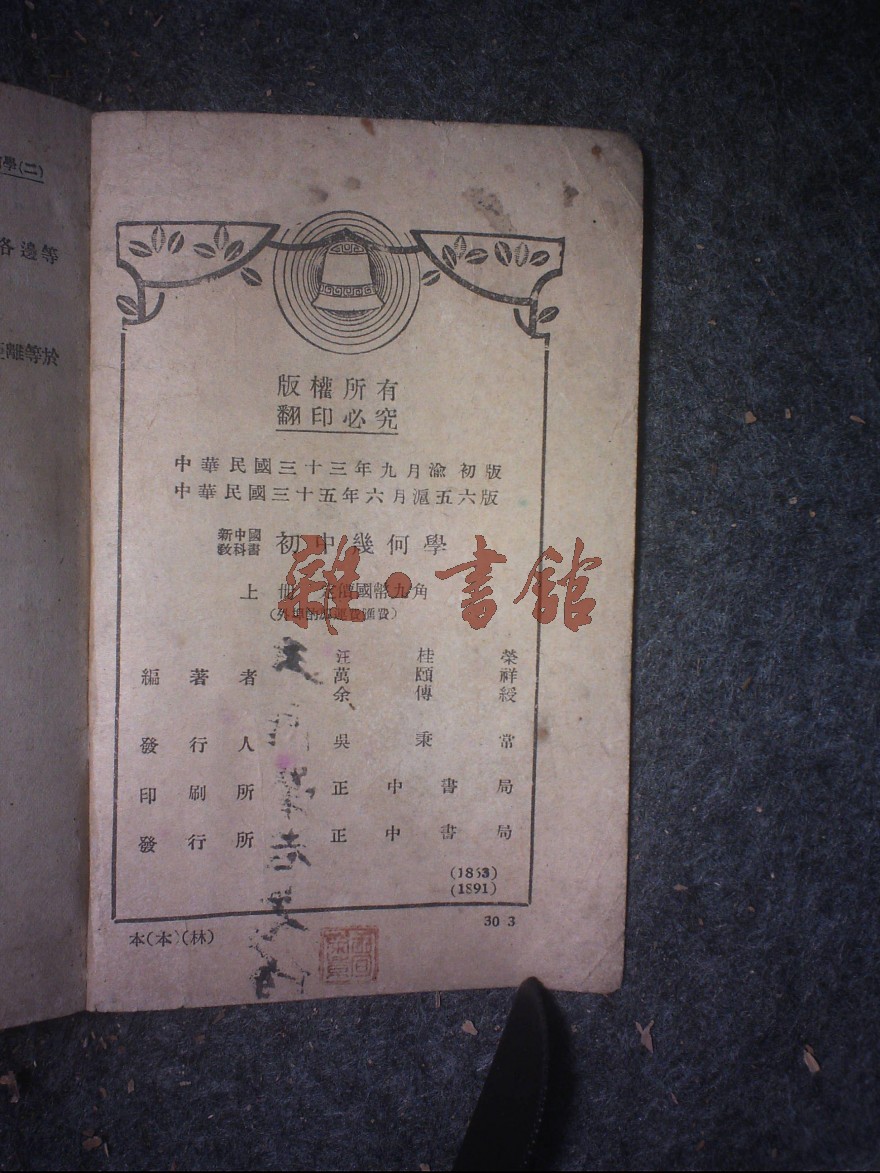 學(二)
各邊等
離等於
版權所有
翻印必究
中華民國三十三年九月渝初版
中華民國三十五年六月滬五六版
新中國教科書 初中幾何學
上冊 定價國幣九角
(外埠酌加運費匯費)
編著者 汪桂榮 萬頤祥 余傅綬
發行人 吳秉常
印刷所 正中書局
發行所 正中書局
(1853)
(1891)
30 3
本(本)(林)
雜·書館